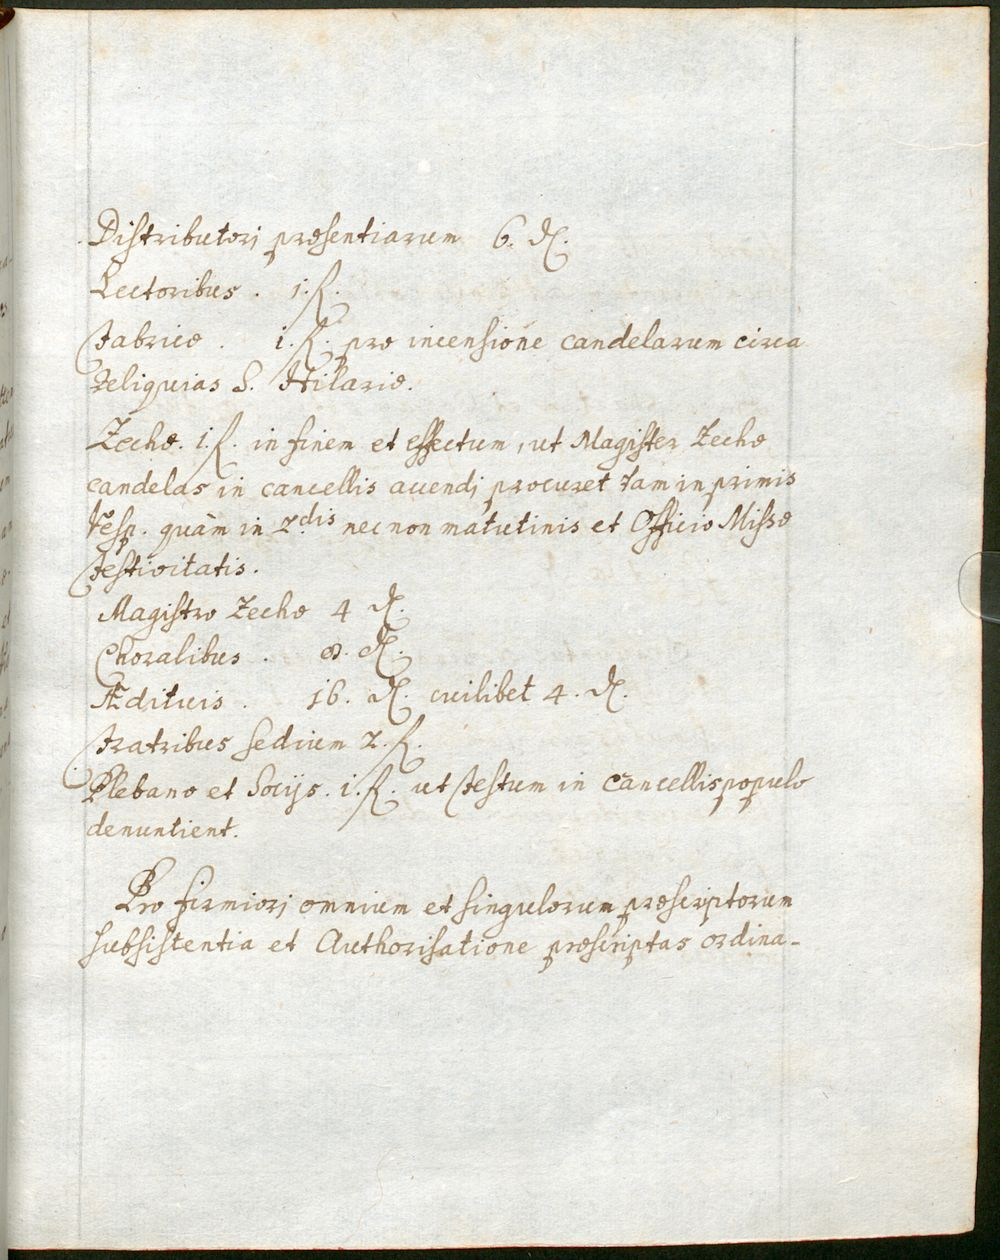 Distributorj præsentiarum 6. ₰.
Lectoribus . 1. fl.
Fabricæ . 1. fl. pro incensione candelarum circa
Reliquias S. Hilariæ.
Zechæ. 1. fl. in finem et effectum, ut Magister Zechæ
candelas in cancellis accendj procuret tam in primis
Vesp. quàm in 2.dis nec non matutinis et Officio Missæ
Festivitatis.
Magistro Zechæ 4 ₰.
Choralibus . 8. ₰.
Ædituis . 16. ₰. cuilibet 4. ₰.
Fratribus sedium 2. fl.
Plebano et Socijs. 1. fl. ut Festum in cancellis populo
denuntient.
Pro firmiorj omnium et singulorum præscriptorum
subsistentia et Authorisatione præscriptas ordina-